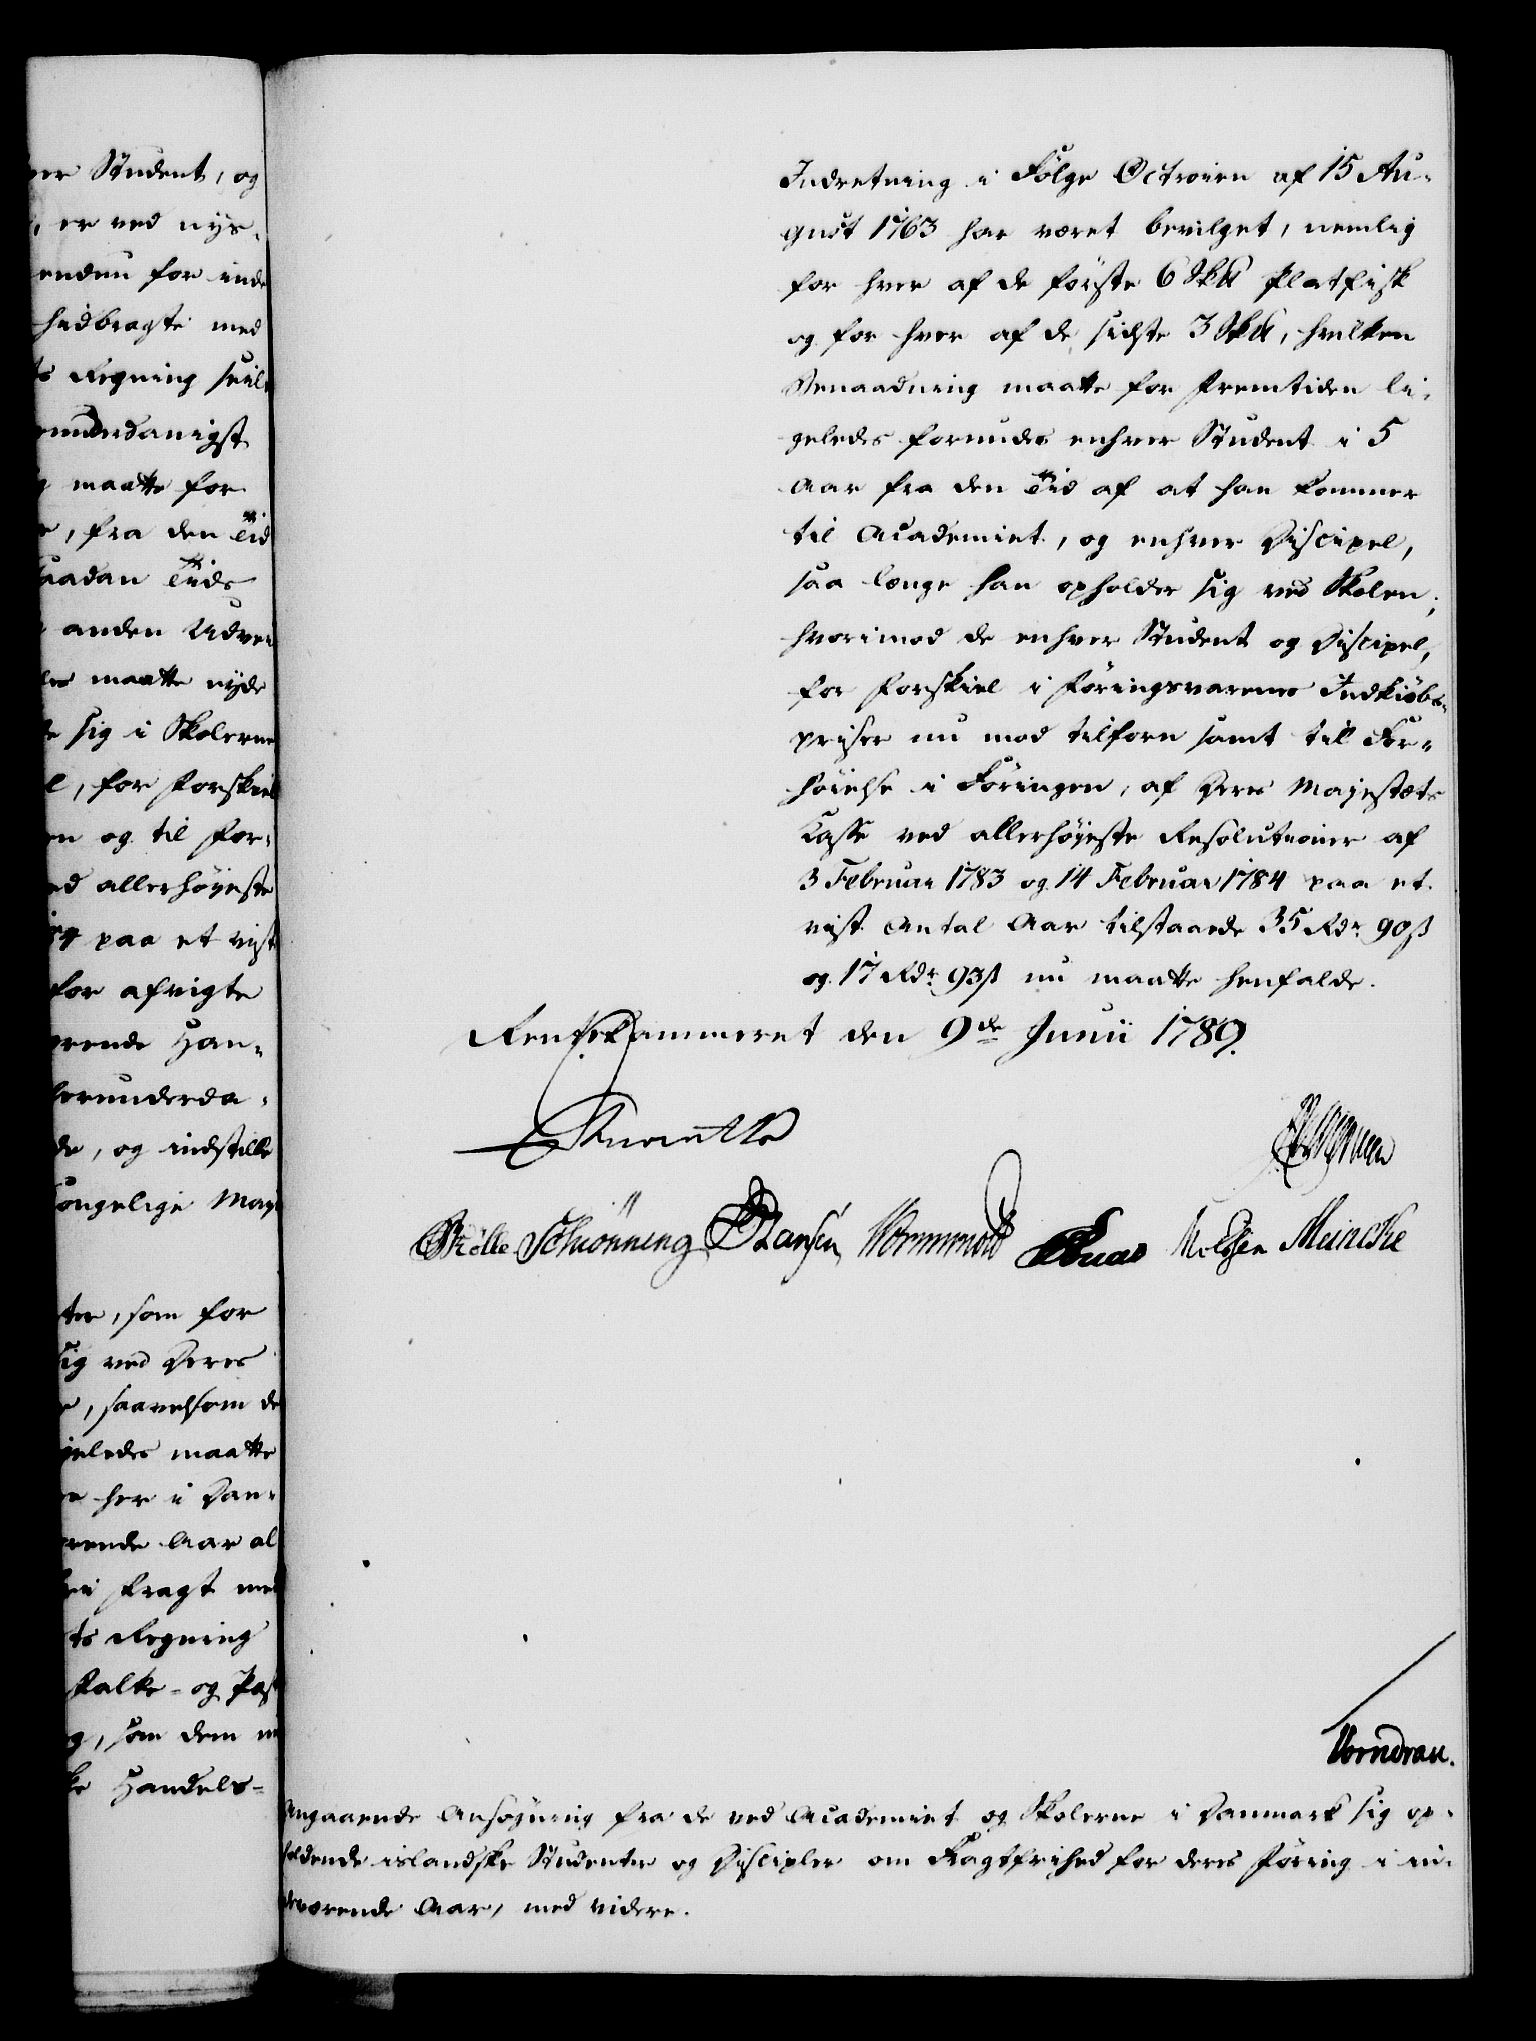 ver Student, og
, er ved nys-
enden for inde
hidbragte med
ts Regning skul
erunderdanigst
maatte for
, fra den Tid
saadan Tids
anden Udvei
les maatte nyde
sig i Skolerne
l, for Forskiel
en og til For-
ed allerhøyeste
84 paa et vist
for afvigte
erende Han-
lerunderda-
de, og indstille
Kongelige May
ter, som for
sig ved Deres
, saavelsom de
geledes maatte
her i Dan-
erende Aar al
fri Fragt med
ts Regning
Falke- og Post
g, som dem
ke Handels-
Indretning i Følge Octroien af 15 Au-
gust 1763 har været bevilget, nemlig
for hver af de første 6 Sk℔ Platfisk
og for hver af de sidste 3 Sk℔, hvilken
Benaadning maatte for Fremtiden li-
geledes forundes enhver Student i 5
Aar fra den Tid af at han kommer
til Academiet, og enhver Discipel,
saa længe han opholder sig ved Skolen;
hvorimod de enhver Student og Discipel,
for Forskiel i Føringsvarenes Indkiøbs-
priser nu mod tilforn samt til For-
høielse i Føringen, af Deres Majestæts
Kasse ved allerhøyeste Resolutioner af
3 Februar 1783 og 14 Februar 1784 paa et
vist Antal Aar tilstaaede 35 Rdr 90 ß
og 17 Rdr 93 ß nu maatte henfalde.
Rentekammeret den 9de Junii 1789.
Schiønning Hansen Wormskiold Meincke
Vorndran.
Angaaende Ansøgning fra de ved Academiet og Skolerne i Danmark sig op-
holdende islandske Studenter og Discipler om Fragtfrihed for deres Føring i in-
deværende Aar, med videre.